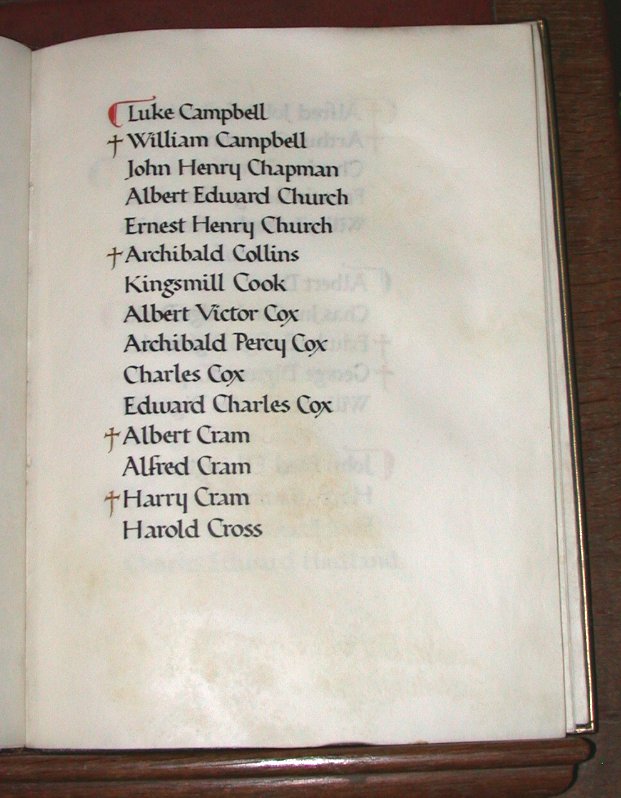 Luke Campbell
† William Campbell
John Henry Chapman
Albert Edward Church
Ernest Henry Church
† Archibald Collins
Kingsmill Cook
Albert Victor Cox
Archibald Percy Cox
Charles Cox
Edward Charles Cox
† Albert Cram
Alfred Cram
† Harry Cram
Harold Cross